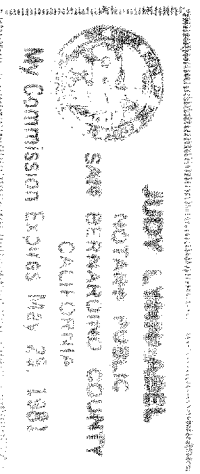 JUDY L.
NOTARY PUBLIC
SAN BERNARDINO COUNTY
CALIFORNIA
My Commission Expires May 1981